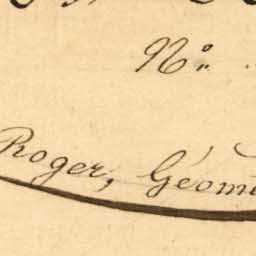 N.o
Roger, Géom